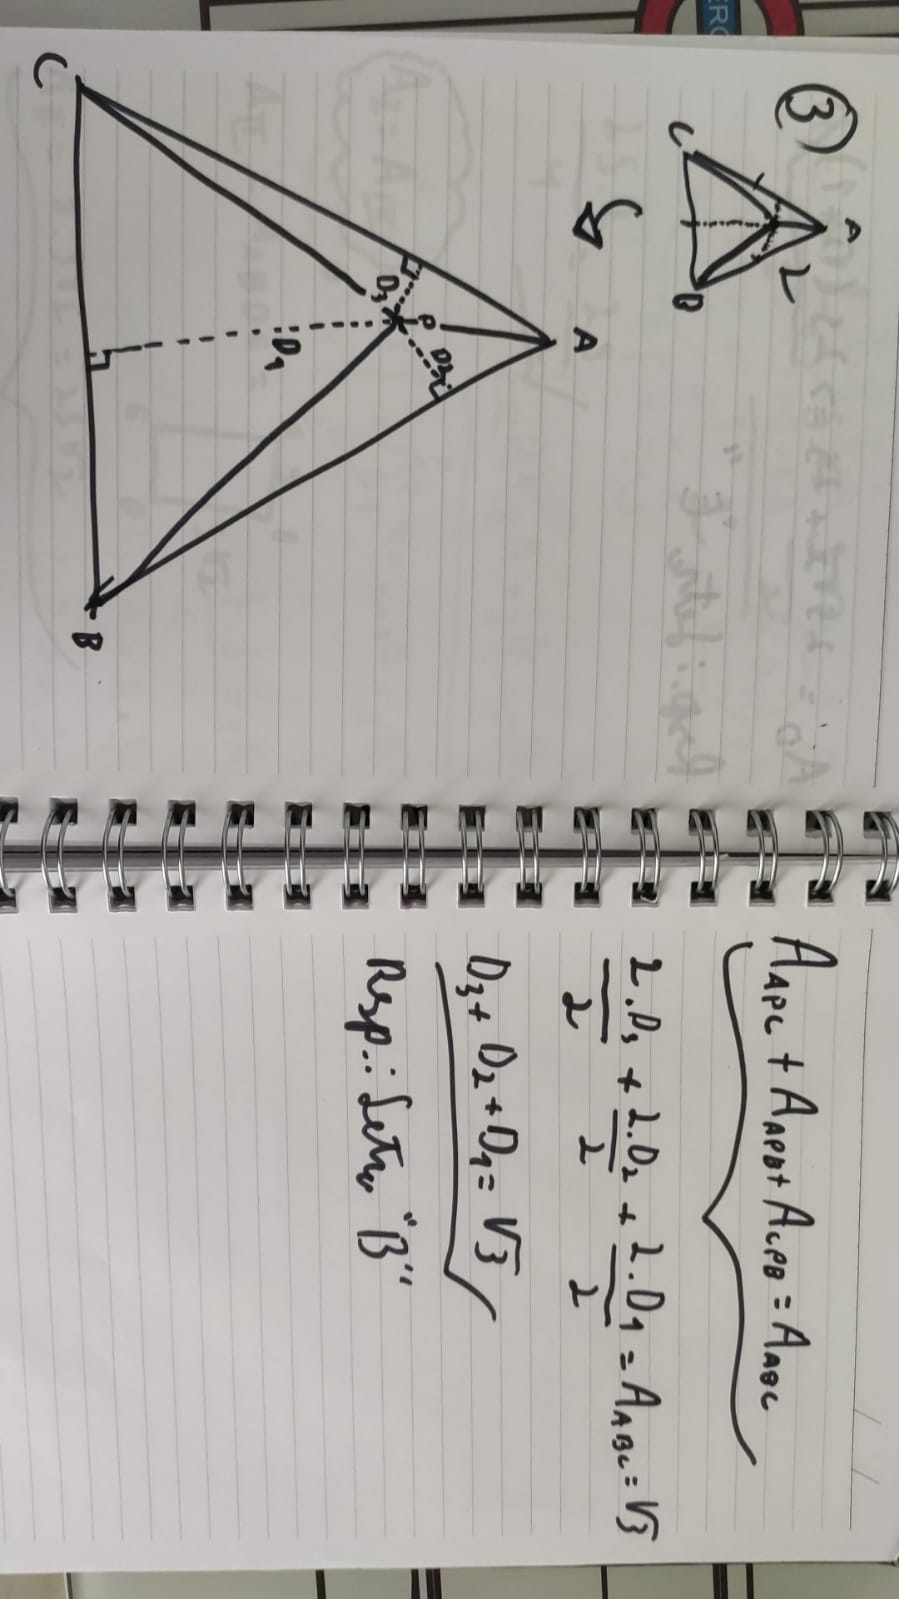 3)
A
C
B
2
A
D3
P
D2
D1
C
B
A_APC + A_APB + A_CPB = A_ABC
2.D3/2 + 2.D2/2 + 2.D1/2 = A_ABC = √3
D3 + D2 + D1 = √3
Resp.: Letra "B"